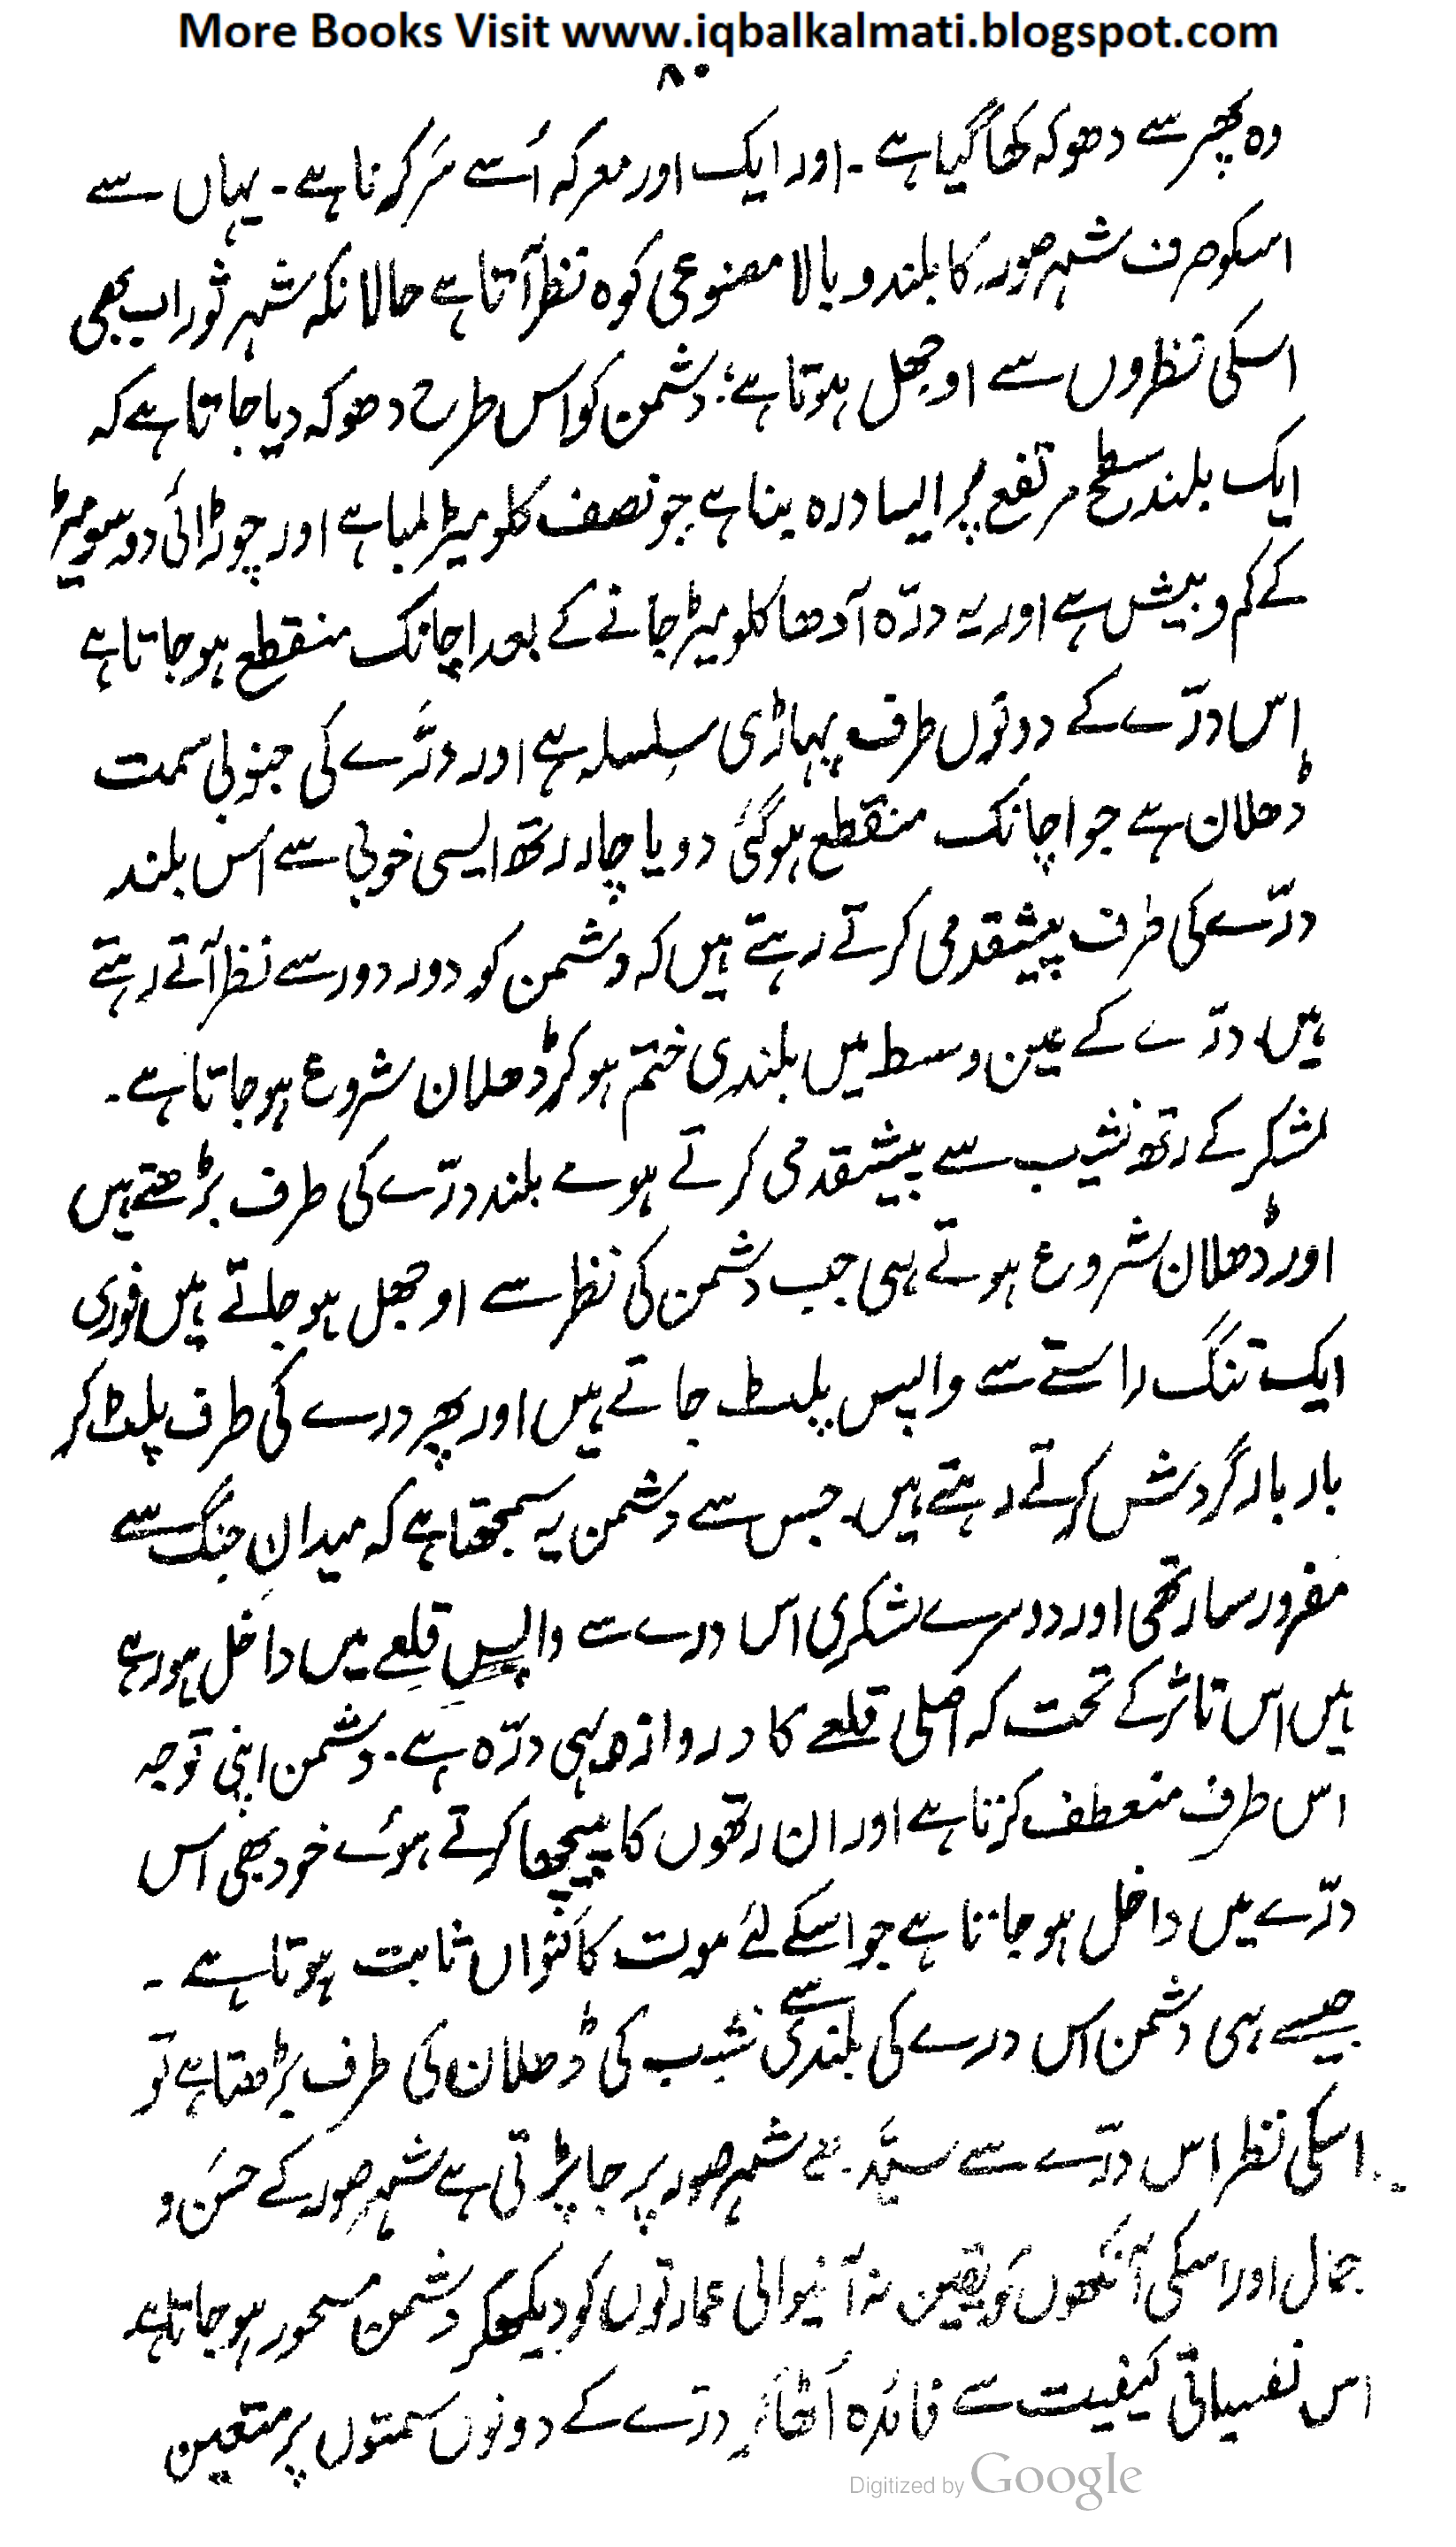 More Books Visit www.iqbalkalmati.blogspot.com
۸۰
وہ پھر سے دھوکہ کھا گیا ہے ۔ اور ایک اور معرکہ اُسے سَر کرنا ہے ۔ یہاں سے
اسکو صرف شہر صور کا بلند و بالا مصنوعی کوہ نظر آتا ہے حالانکہ شہر ثور اب بھی
اسکی نظروں سے اوجھل ہوتا ہے؛ دشمن کو اس طرح دھوکہ دیا جاتا ہے کہ
ایک بلند سطح مرتفع پر ایسا درہ بنا ہے جو نصف کلو میٹر لمبا ہے اور چوڑائی دو سو میٹر
کے کم و بیش ہے اور یہ درّہ آدھا کلو میٹر جانے کے بعد اچانک منقطع ہو جاتا ہے
اس درّے کے دونوں طرف پہاڑی سِلسلہ ہے اور درّے کی جنوبی سمت
ڈھلان ہے جو اچانک منقطع ہو گئی دو یا چار رتھ ایسی خوبی سے اس بلند
درّے کی طرف پیشقدمی کرتے رہتے ہیں کہ دشمن کو دور دور سے نظر آتے رہتے
ہیں۔ درّے کے عین وسط میں بلندی ختم ہو کر ڈھلان شروع ہو جاتا ہے ۔
لشکر کے رتھ نشیب سے پیشقدمی کرتے ہوے بلند درّے کی طرف بڑھتے ہیں
اور ڈھلان شروع ہوتے ہی جب دشمن کی نظر سے اوجھل ہو جاتے ہیں فوری
ایک تنگ راستے سے واپس پلٹ جاتے ہیں اور پھر درے کی طرف پلٹ کر
بار بار گردش کرتے رہتے ہیں۔ جس سے دشمن یہ سمجھتا ہے کہ میدانِ جنگ سے
مفرور سارتھی اور دوسرے لشکری اس درے سے واپس قلعے میں داخل ہو رہے
ہیں اس تاثر کے تحت کہ اصلی قلعے کا دروازہ یہی درّہ ہے ۔ دشمن اپنی توجہ
اس طرف منعطف کرتا ہے اور ان رتھوں کا پیچھا کرتے ہوئے خود بھی اس
درّے میں داخل ہو جاتا ہے جو اسکے لئے موت کا کنواں ثابت ہوتا ہے ۔
جیسے ہی دشمن اس درے کی بلندی سے نشیب کی ڈھلان کی طرف بڑھتا ہے تو
اسکی نظر اس درّے سے سیدھے شہر صور پر جا پڑتی ہے شہر صور کے حسن و
جمال اور اسکی آنکھوں کو یقین نہ آنیوالی عمارتوں کو دیکھکر دشمن مسحور ہو جاتا ہے
اس نفسیاتی کیفیت سے فائدہ اُٹھا کر درّے کے دونوں سمتوں پر متعین
Digitized by Google